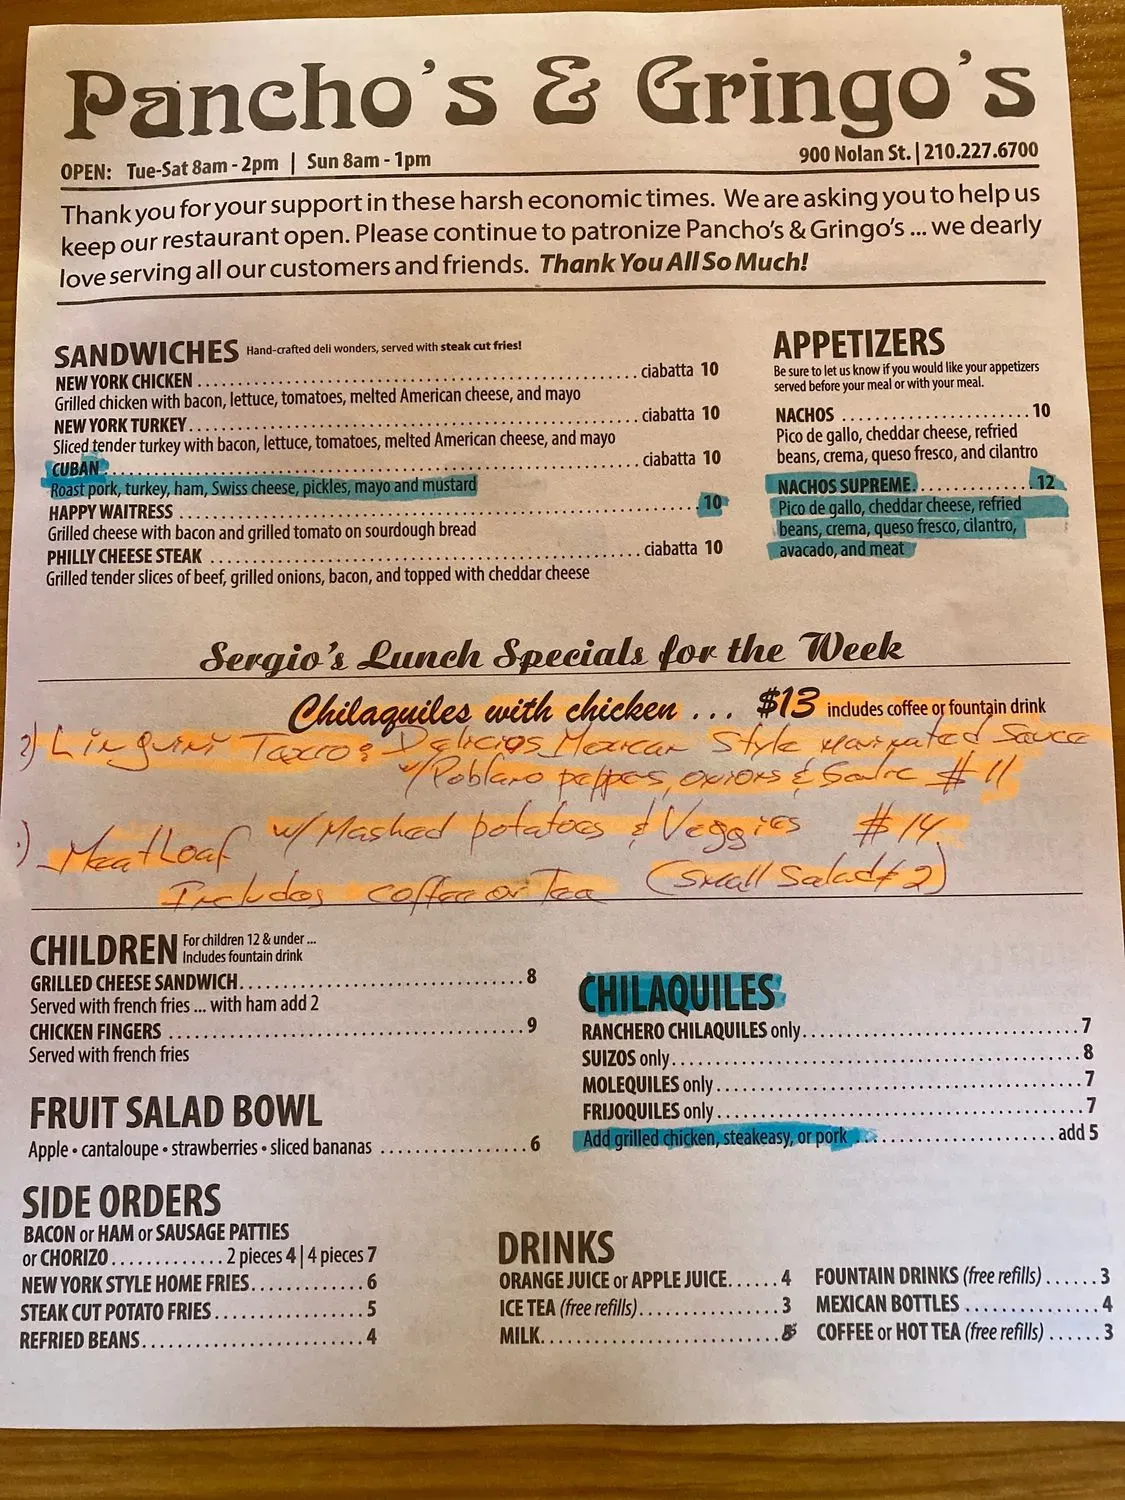 Pancho's & Gringo's
OPEN: Tue-Sat 8am - 2pm | Sun 8am - 1pm
900 Nolan St. | 210.227.6700
Thank you for your support in these harsh economic times. We are asking you to help us
keep our restaurant open. Please continue to patronize Pancho's & Gringo's ... we dearly
love serving all our customers and friends. Thank You All So Much!
SANDWICHES Hand-crafted deli wonders, served with steak cut fries!
NEW YORK CHICKEN ........ ciabatta 10
Grilled chicken with bacon, lettuce, tomatoes, melted American cheese, and mayo
NEW YORK TURKEY ........ ciabatta 10
Sliced tender turkey with bacon, lettuce, tomatoes, melted American cheese, and mayo
CUBAN ........ ciabatta 10
Roast pork, turkey, ham, Swiss cheese, pickles, mayo and mustard
HAPPY WAITRESS ........ 10
Grilled cheese with bacon and grilled tomato on sourdough bread
PHILLY CHEESE STEAK ........ ciabatta 10
Grilled tender slices of beef, grilled onions, bacon, and topped with cheddar cheese
APPETIZERS
Be sure to let us know if you would like your appetizers
served before your meal or with your meal.
NACHOS ........ 10
Pico de gallo, cheddar cheese, refried
beans, crema, queso fresco, and cilantro
NACHOS SUPREME ........ 12
Pico de gallo, cheddar cheese, refried
beans, crema, queso fresco, cilantro,
avacado, and meat
Sergio's Lunch Specials for the Week
Chilaquiles with chicken ... $13 includes coffee or fountain drink
2) Linguini Taxco: Delicios Mexican Style marinated Sauce
w/ Poblano peppes, onions & Garlic $11
) Meat Loaf w/ Mashed potatoes & Veggies $14.
Includes coffee or Tea (Small Salad $2)
CHILDREN For children 12 & under ...
Includes fountain drink
GRILLED CHEESE SANDWICH ........ 8
Served with french fries ... with ham add 2
CHICKEN FINGERS ........ 9
Served with french fries
FRUIT SALAD BOWL
Apple • cantaloupe • strawberries • sliced bananas ........ 6
CHILAQUILES
RANCHERO CHILAQUILES only ........ 7
SUIZOS only ........ 8
MOLEQUILES only ........ 7
FRIJOQUILES only ........ 7
Add grilled chicken, steakeasy, or pork ........ add 5
SIDE ORDERS
BACON or HAM or SAUSAGE PATTIES
or CHORIZO ........ 2 pieces 4 | 4 pieces 7
NEW YORK STYLE HOME FRIES ........ 6
STEAK CUT POTATO FRIES ........ 5
REFRIED BEANS ........ 4
DRINKS
ORANGE JUICE or APPLE JUICE ........ 4
ICE TEA (free refills) ........ 3
MILK ........
FOUNTAIN DRINKS (free refills) ........ 3
MEXICAN BOTTLES ........ 4
COFFEE or HOT TEA (free refills) ........ 3